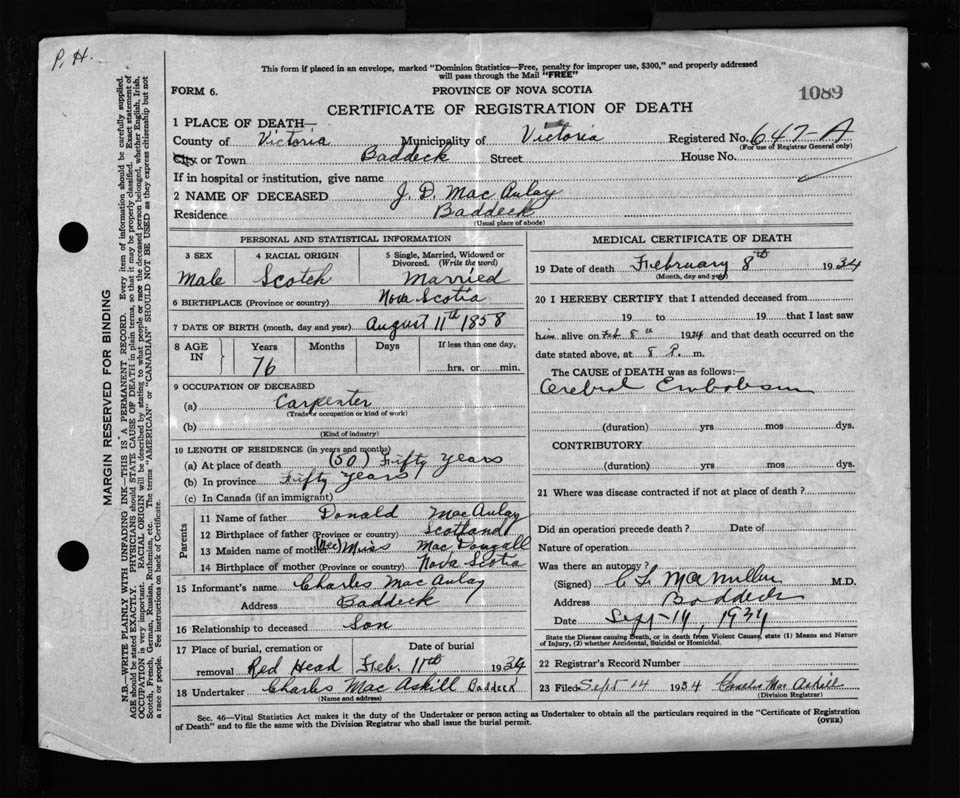 P. H.
This form if placed in an envelope, marked "Dominion Statistics—Free, penalty for improper use, $300," and properly addressed
will pass through the Mail "FREE"
FORM 6.
PROVINCE OF NOVA SCOTIA
1089
CERTIFICATE OF REGISTRATION OF DEATH
1 PLACE OF DEATH—
County of Victoria Municipality of Victoria Registered No. 647-A
(For use of Registrar General only)
City or Town Baddeck Street House No.
If in hospital or institution, give name
2 NAME OF DECEASED J. D. Mac Aulay
Residence Baddeck
(Usual place of abode)
PERSONAL AND STATISTICAL INFORMATION
3 SEX 4 RACIAL ORIGIN 5 Single, Married, Widowed or Divorced. (Write the word)
Male Scotch Married
6 BIRTHPLACE (Province or country) Nova Scotia
7 DATE OF BIRTH (month, day and year) August 11th 1858
8 AGE IN Years Months Days If less than one day,
76 hrs. or min.
9 OCCUPATION OF DECEASED
(a) Carpenter
(Trade or occupation or kind of work)
(b)
(Kind of industry)
10 LENGTH OF RESIDENCE (in years and months)
(a) At place of death (50) Fifty years
(b) In province Fifty years
(c) In Canada (if an immigrant)
Parents
11 Name of father Donald MacAulay
12 Birthplace of father (Province or country) Scotland
13 Maiden name of mother (Nee) Miss Mac Dougall
14 Birthplace of mother (Province or country) Nova Scotia
15 Informant's name Charles Mac Aulay
Address Baddeck
16 Relationship to deceased Son
17 Place of burial, cremation or removal Date of burial
Red Head Feb. 11th 1934
18 Undertaker Charles Mac Askill Baddeck
(Name and address)
MEDICAL CERTIFICATE OF DEATH
19 Date of death February 8th 1934
(Month, day and year)
20 I HEREBY CERTIFY that I attended deceased from
19 to 19 that I last saw
him alive on Feb 8th 1934 and that death occurred on
date stated above, at 8 P. m.
The CAUSE of DEATH was as follows:
Cerebral Embolism
(duration) yrs mos dys.
CONTRIBUTORY
(duration) yrs mos dys.
21 Where was disease contracted if not at place of death?
Did an operation precede death? Date of
Nature of operation
Was there an autopsy?
(Signed) C L MacMillan M.D.
Address Baddeck
Date Sept-14, 1934
State the Disease causing Death, or in death from Violent Causes, state (1) Means and Nature
of Injury, (2) whether Accidental, Suicidal or Homicidal.
22 Registrar's Record Number
23 Filed Sept 14 1934 Charles Mac Askill
(Division Registrar)
Sec. 46—Vital Statistics Act makes it the duty of the Undertaker or person acting as Undertaker to obtain all the particulars required in the "Certificate of Registration
of Death" and to file the same with the Division Registrar who shall issue the burial permit.
(OVER)
MARGIN RESERVED FOR BINDING
N.B.—WRITE PLAINLY WITH UNFADING INK—THIS IS A PERMANENT RECORD. Every item of information should be carefully supplied.
AGE should be stated EXACTLY. PHYSICIANS should STATE CAUSE OF DEATH in plain terms, so that it may be properly classified. Exact statement of
OCCUPATION is very important. RACIAL ORIGIN will be described by stating to what people or race the deceased person belonged, whether English, Irish,
Scotch, French, German, Russian, Ruthenian, etc. The terms "AMERICAN" or "CANADIAN" SHOULD NOT BE USED as they express citizenship but not
a race or people. See instructions on back of Certificate.